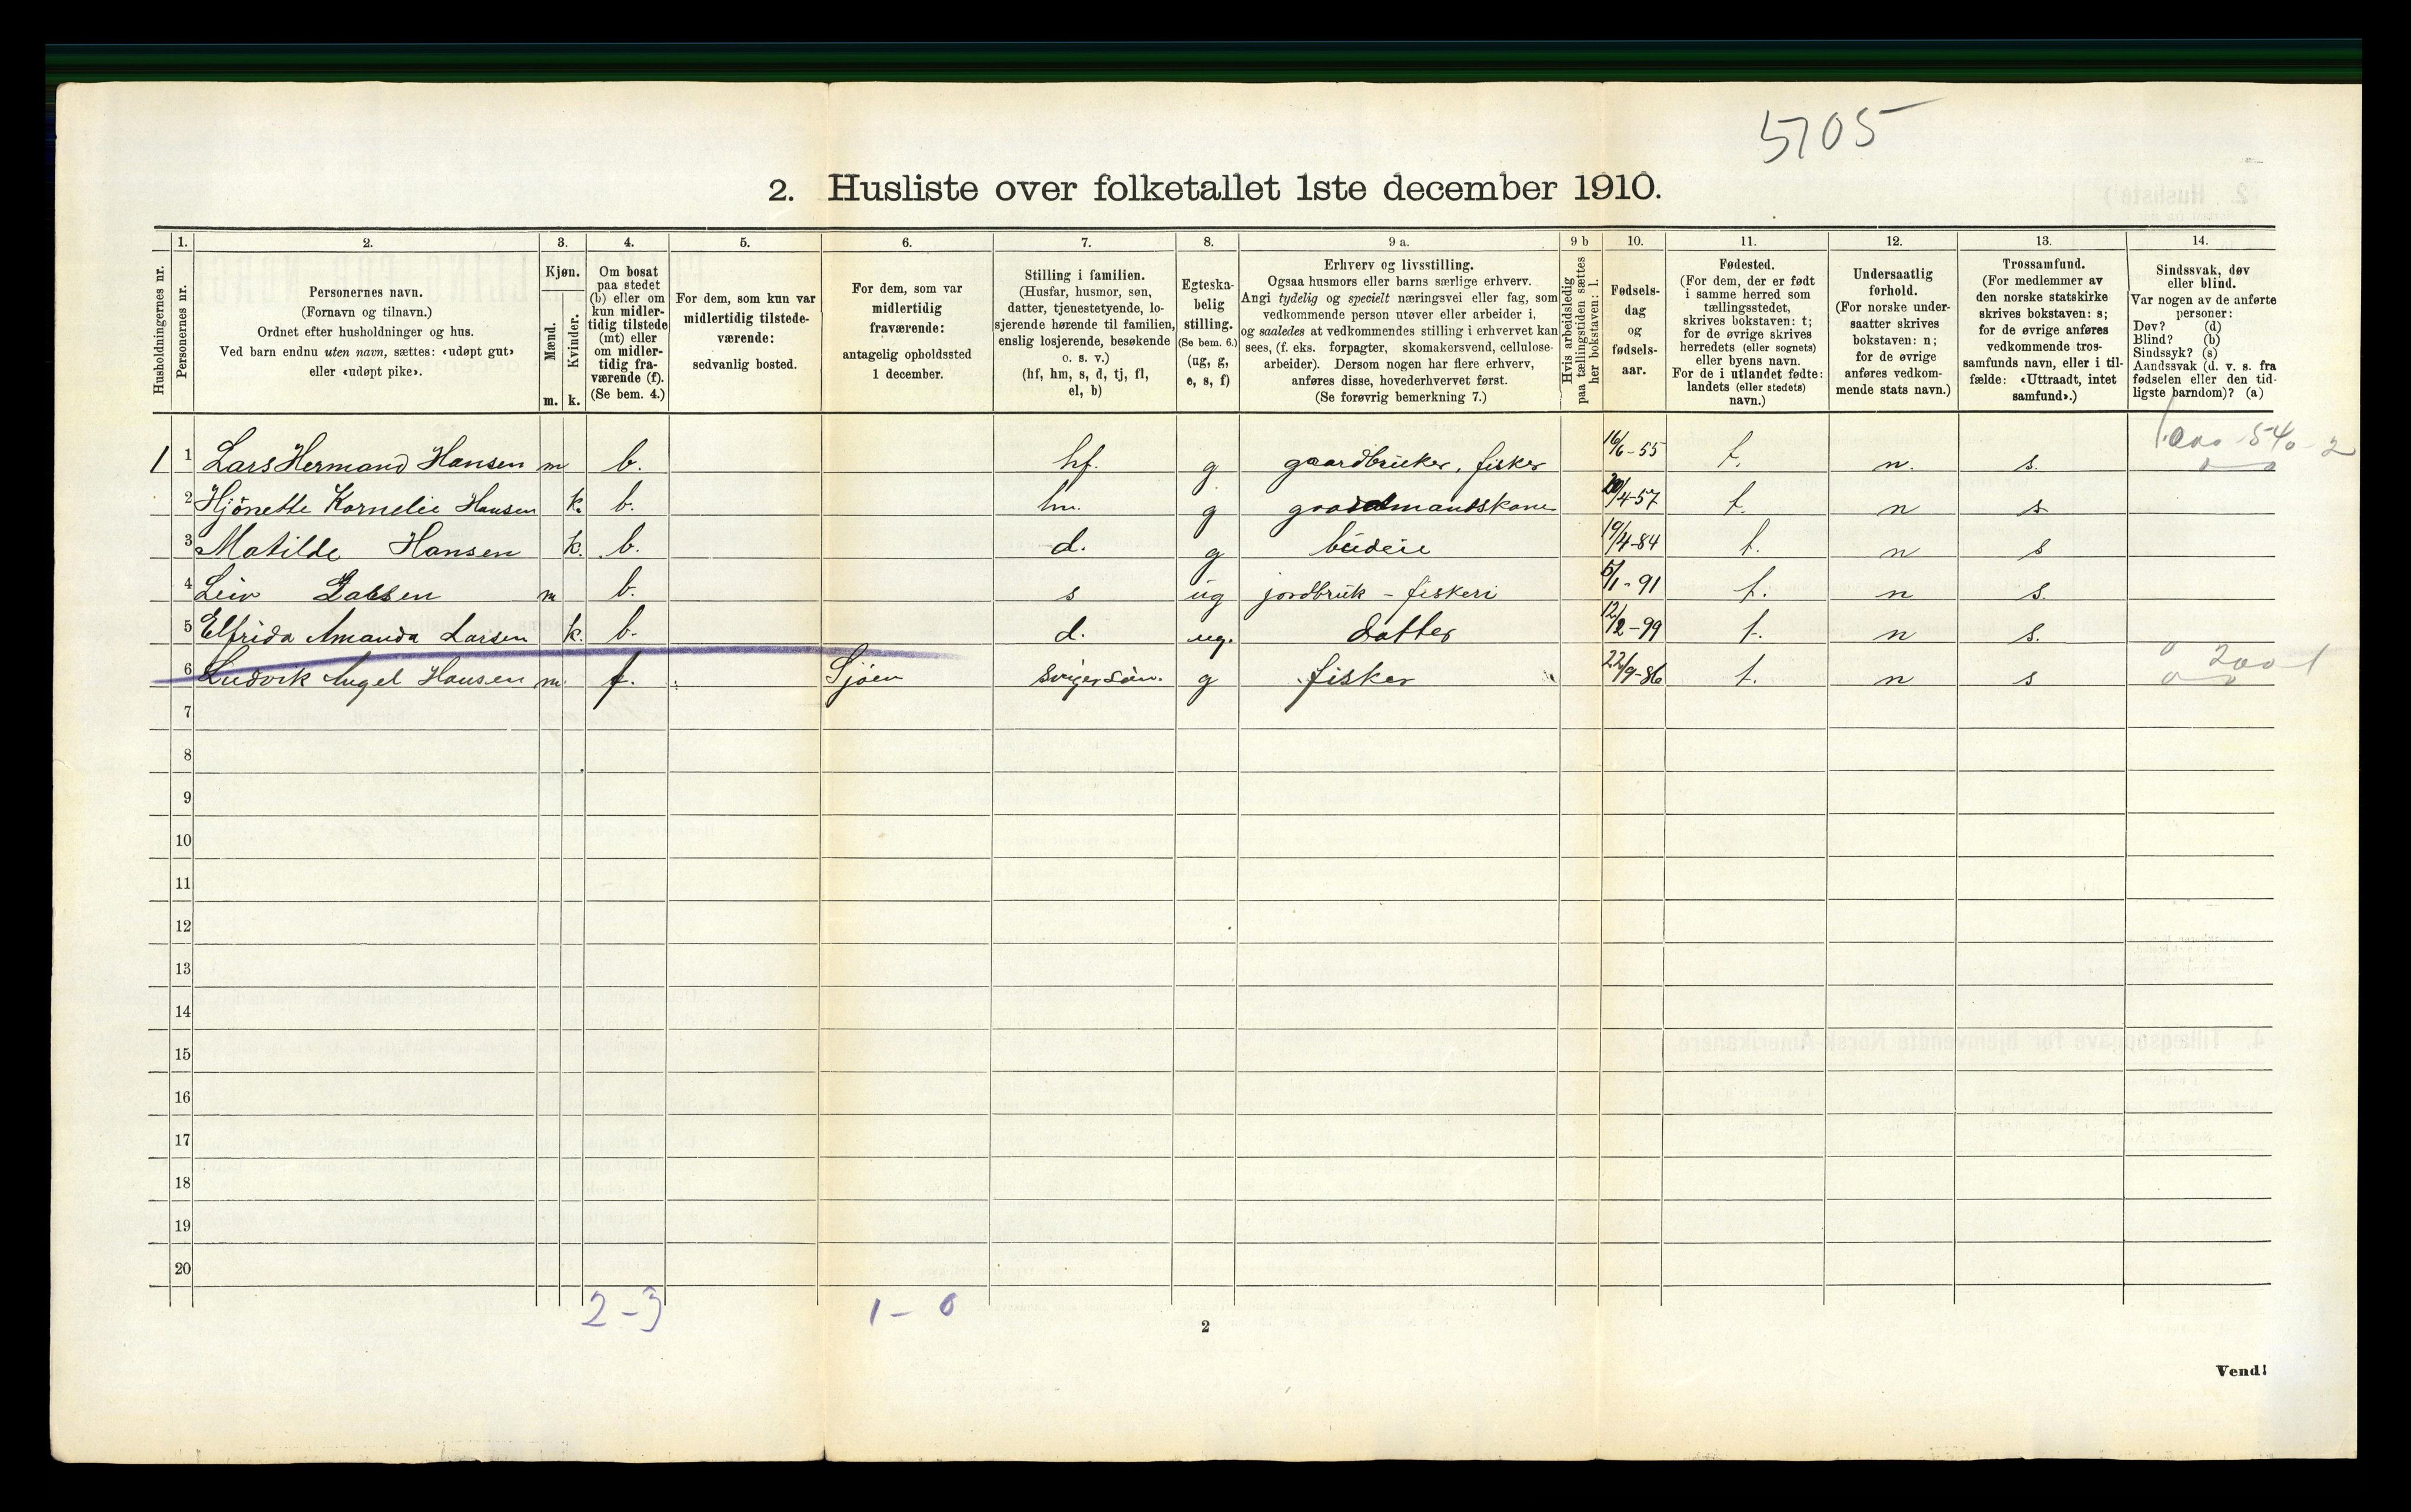 5705
2. Husliste over folketallet 1ste december 1910.
Husholdningernes nr.
1.
Personernes nr.
2.
Personernes navn.
(Fornavn og tilnavn.)
Ordnet efter husholdninger og hus.
Ved barn endnu uten navn, sættes: «udøpt gut»
eller «udøpt pike».
3.
Kjøn.
Mænd.
Kvinder.
m. k.
4.
Om bosat
paa stedet
(b) eller om
kun midler-
tidig tilstede
(mt) eller
om midler-
tidig fra-
værende (f).
(Se bem. 4.)
5.
For dem, som kun var
midlertidig tilstede-
værende:
sedvanlig bosted.
6.
For dem, som var
midlertidig
fraværende:
antagelig opholdssted
1 december.
7.
Stilling i familien.
(Husfar, husmor, søn,
datter, tjenestetyende, lo-
sjerende hørende til familien,
enslig losjerende, besøkende
o. s. v.)
(hf, hm, s, d, tj, fl,
el, b)
8.
Egteska-
belig
stilling.
(Se bem. 6.)
(ug, g,
e, s, f)
9 a.
Erhverv og livsstilling.
Ogsaa husmors eller barns særlige erhverv.
Angi tydelig og specielt næringsvei eller fag, som
vedkommende person utøver eller arbeider i,
og saaledes at vedkommendes stilling i erhvervet kan
sees, (f. eks. forpagter, skomakersvend, cellulose-
arbeider). Dersom nogen har flere erhverv,
anføres disse, hovederhvervet først.
(Se forøvrig bemerkning 7.)
9 b
Hvis arbeidsledig
paa tællingstiden sættes
her bokstaven: l.
10.
Fødsels-
dag
og
fødsels-
aar.
11.
Fødested.
(For dem, der er født
i samme herred som
tællingsstedet,
skrives bokstaven: t;
for de øvrige skrives
herredets (eller sognets)
eller byens navn.
For de i utlandet fødte:
landets (eller stedets)
navn.)
12.
Undersaatlig
forhold.
(For norske under-
saatter skrives
bokstaven: n;
for de øvrige
anføres vedkom-
mende stats navn.)
13.
Trossamfund.
(For medlemmer av
den norske statskirke
skrives bokstaven: s;
for de øvrige anføres
vedkommende tros-
samfunds navn, eller i til-
fælde: «Uttraadt, intet
samfund».)
14.
Sindssvak, døv
eller blind.
Var nogen av de anførte
personer:
Døv? (d)
Blind? (b)
Sindssyk? (s)
Aandssvak (d. v. s. fra
fødselen eller den tid-
ligste barndom)? (a)
1 1 Lars Hermand Hansen m b. hf. g gaardbruker, fisker 16/6-55 t. n. s.
2 Hjönette Kornelie Hansen k. b. hm. g gaardmandskone 20/4-57 t. n s
3 Matilde Hansen k. b. d. g budeie 19/4-84 t. n s
4 Leiv Larsen m b. s ug jordbruk - fiskeri 5/1-91 t. n s.
5 Elfrida Amanda Larsen k. b. d. ug. datter 12/2-99 t. n s.
6 Ludvik Angel Hansen m. f. Sjøen svigersön. g fisker 22/9-86 t. n s 200-1
7
8
9
10
11
12
13
14
15
16
17
18
19
20
2-3 1-0
2
Vend!